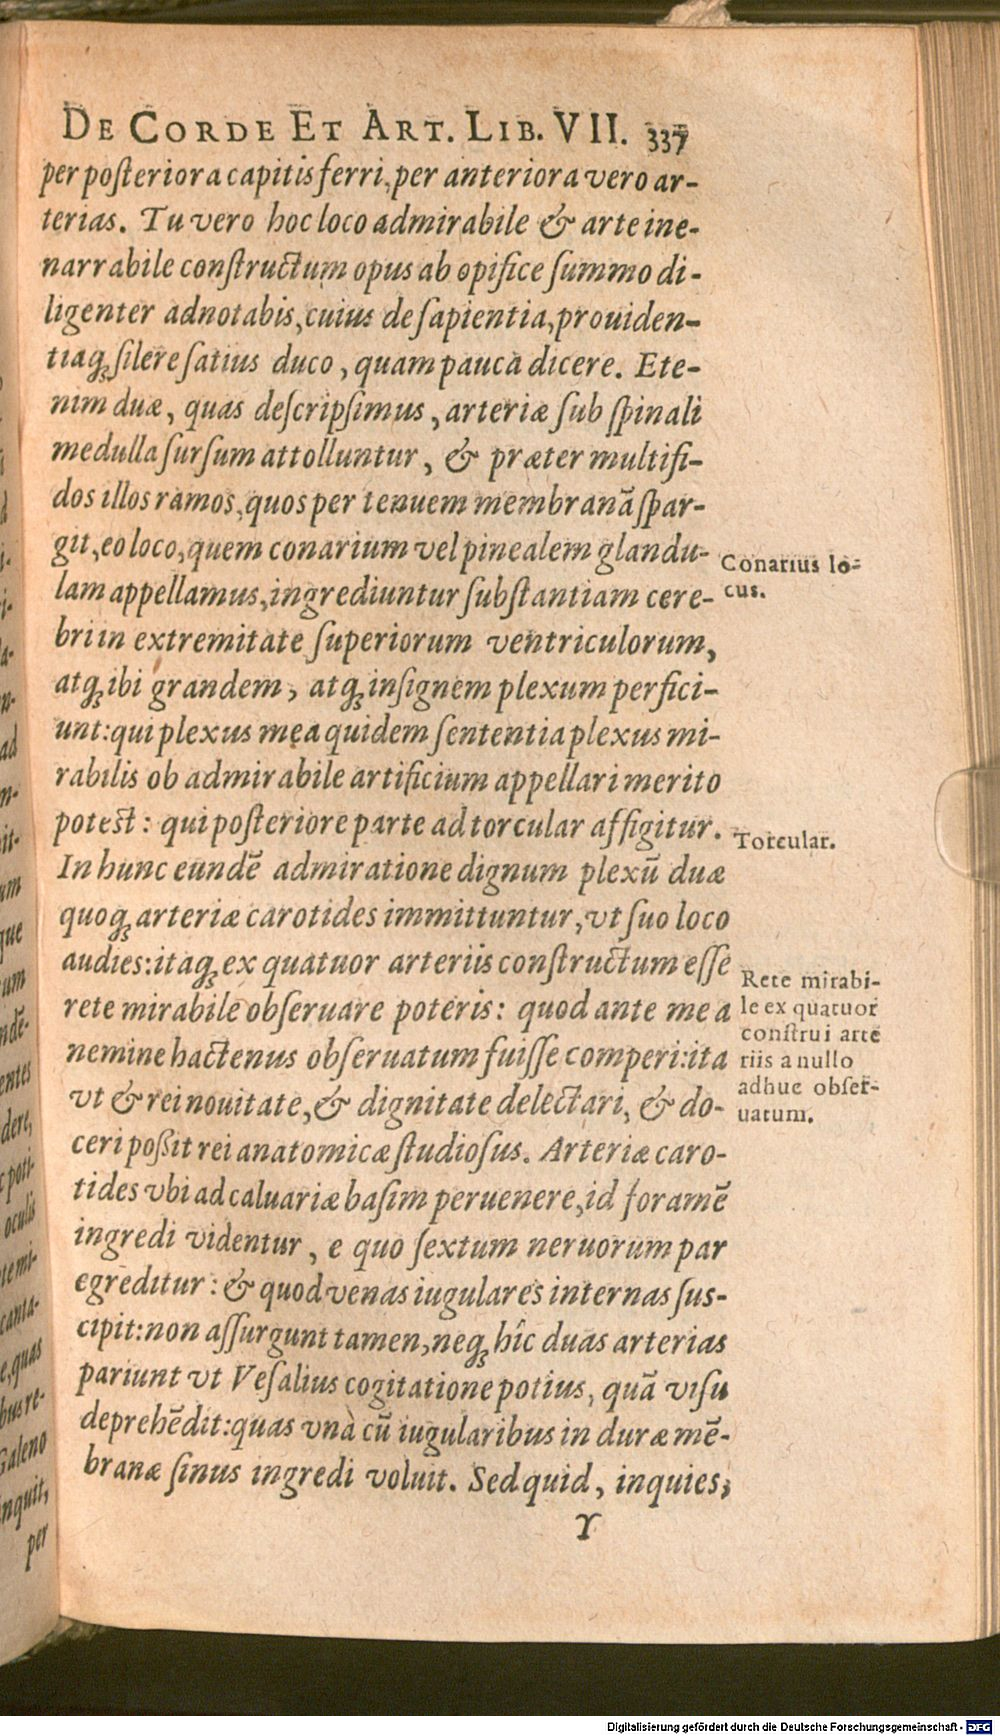 DE CORDE ET ART. LIB. VII. 337
per poſteriora capitis ferri, per anteriora vero ar-
terias. Tu vero hoc loco admirabile & arte ine-
narrabile conſtructum opus ab opifice ſummo di-
ligenter adnotabis, cuius de ſapientia, prouiden-
tiaqꝫ ſilere ſatius duco, quam pauca dicere. Ete-
nim duæ, quas deſcripſimus, arteriæ ſub ſpinali
medulla ſurſum attolluntur, & præter multifi-
dos illos ramos, quos per tenuem membranã ſpar-
git, eo loco, quem conarium vel pinealem glandu-
lam appellamus, ingrediuntur ſubſtantiam cere-
bri in extremitate ſuperiorum ventriculorum,
atqꝫ ibi grandem, atqꝫ inſignem plexum perfici-
unt: qui plexus mea quidem ſententia plexus mi-
rabilis ob admirabile artificium appellari merito
potest: qui poſteriore parte ad torcular affigitur.
In hunc eundẽ admiratione dignum plexũ duæ
quoqꝫ arteriæ carotides immittuntur, vt ſuo loco
audies: itaqꝫ ex quatuor arteriis conſtructum eſſe
rete mirabile obſeruare poteris: quod ante me a
nemine hactenus obſeruatum fuiſſe comperi: ita
vt & rei nouitate, & dignitate delectari, & do-
ceri poßit rei anatomicæ ſtudioſus. Arteriæ caro-
tides vbi ad caluariæ baſim peruenere, id foramẽ
ingredi videntur, e quo ſextum neruorum par
egreditur: & quod venas iugulares internas ſus-
cipit: non aſſurgunt tamen, neqꝫ hîc duas arterias
pariunt vt Veſalius cogitatione potius, quã viſu
deprehẽdit: quas vnà cũ iugularibus in duræ mẽ-
branæ ſinus ingredi voluit. Sed quid, inquies,
Y
Conarius lo-
cus.
Torcular.
Rete mirabi-
le ex quatuor
conſtrui arte
riis a nullo
adhuc obſer-
uatum.
per
Digitalisierung gefördert durch die Deutsche Forschungsgemeinschaft - DFG